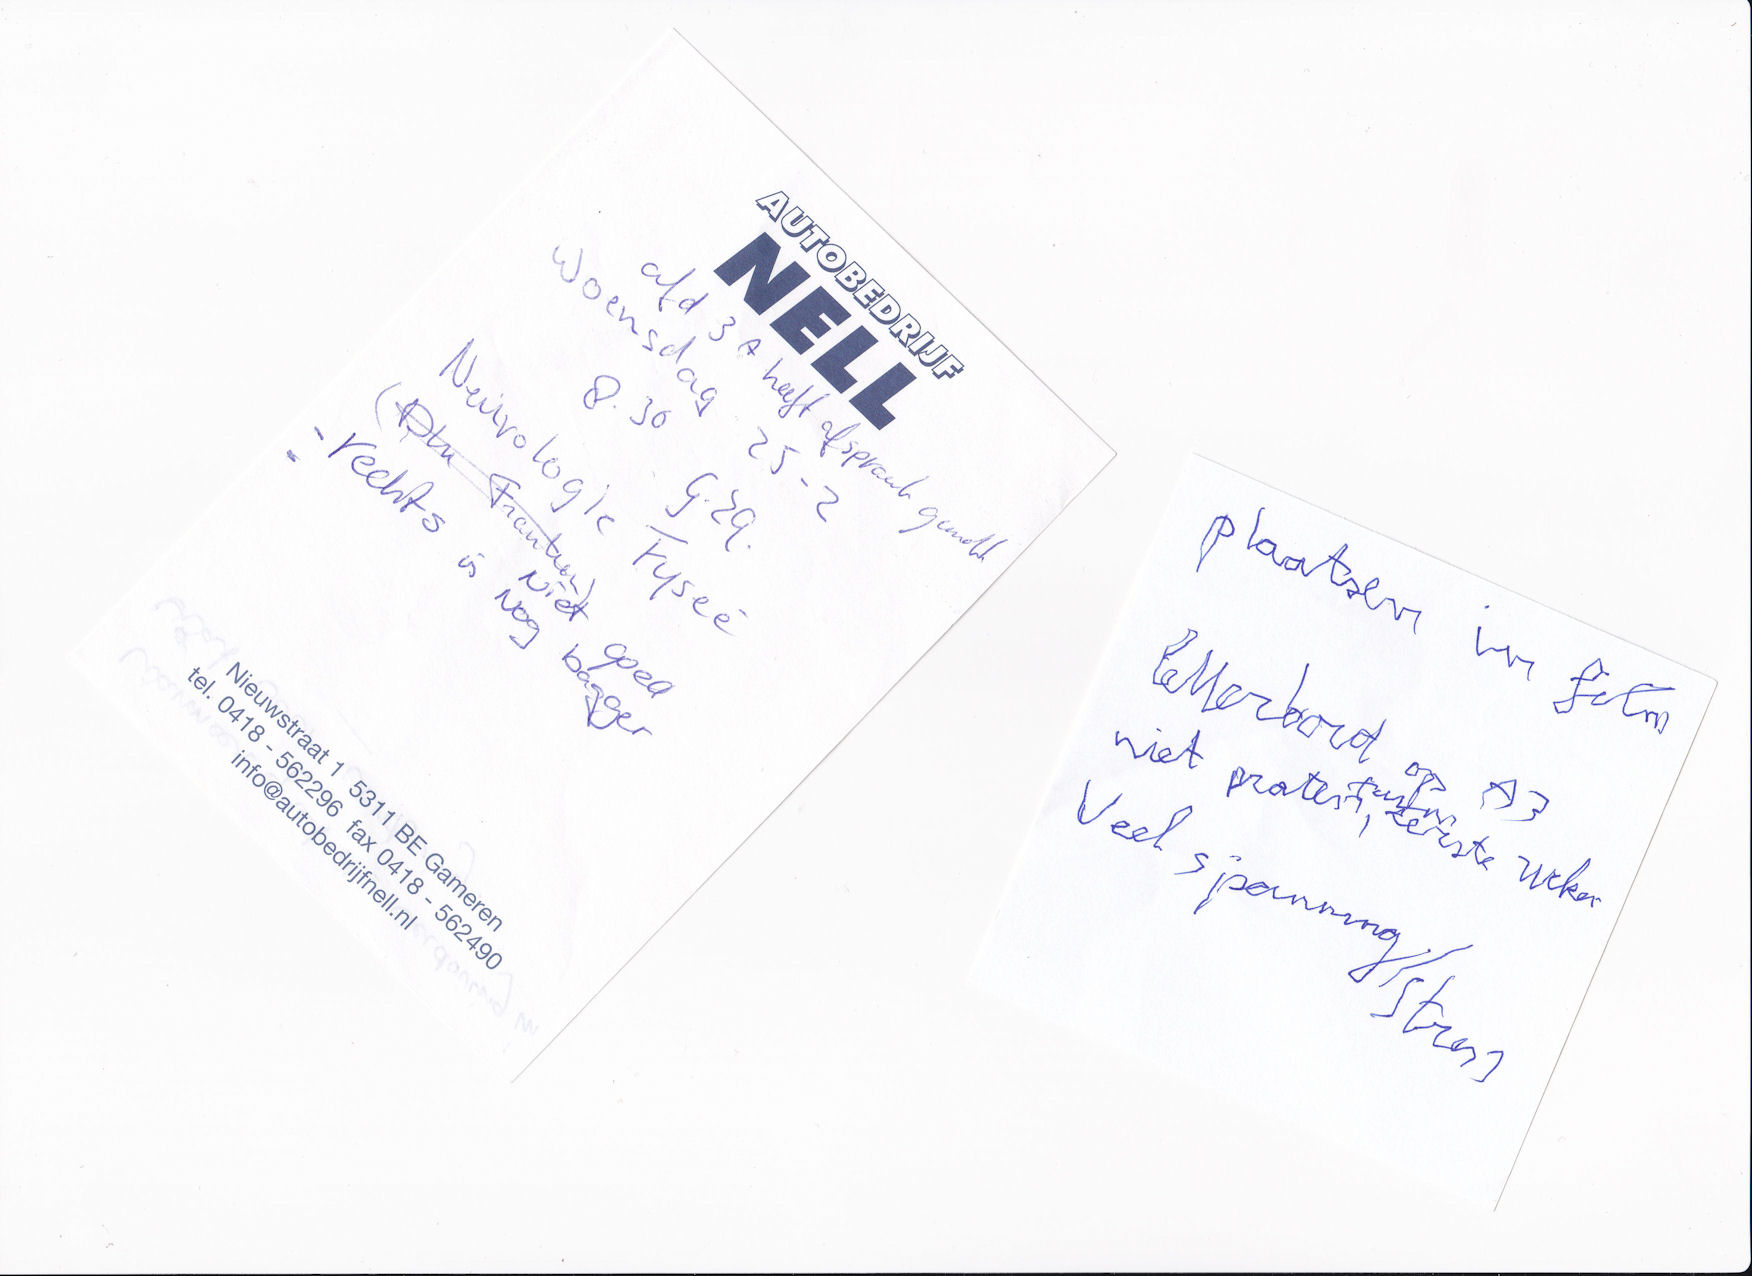 AUTOBEDRIJF
NELL
afd 3 A heeft afspraak gemaakt
Woensdag 25-2
8.30 G.29.
Neurologie Fyseë
(
- rechts is niet goed
- nog bagger
Nieuwstraat 1 5311 BE Gameren
tel. 0418 - 562296 fax 0418 - 562490
info@autobedrijfnell.nl
plaatsen in
letterbord op A3
niet praten, eerste weken
Veel spanning/stress